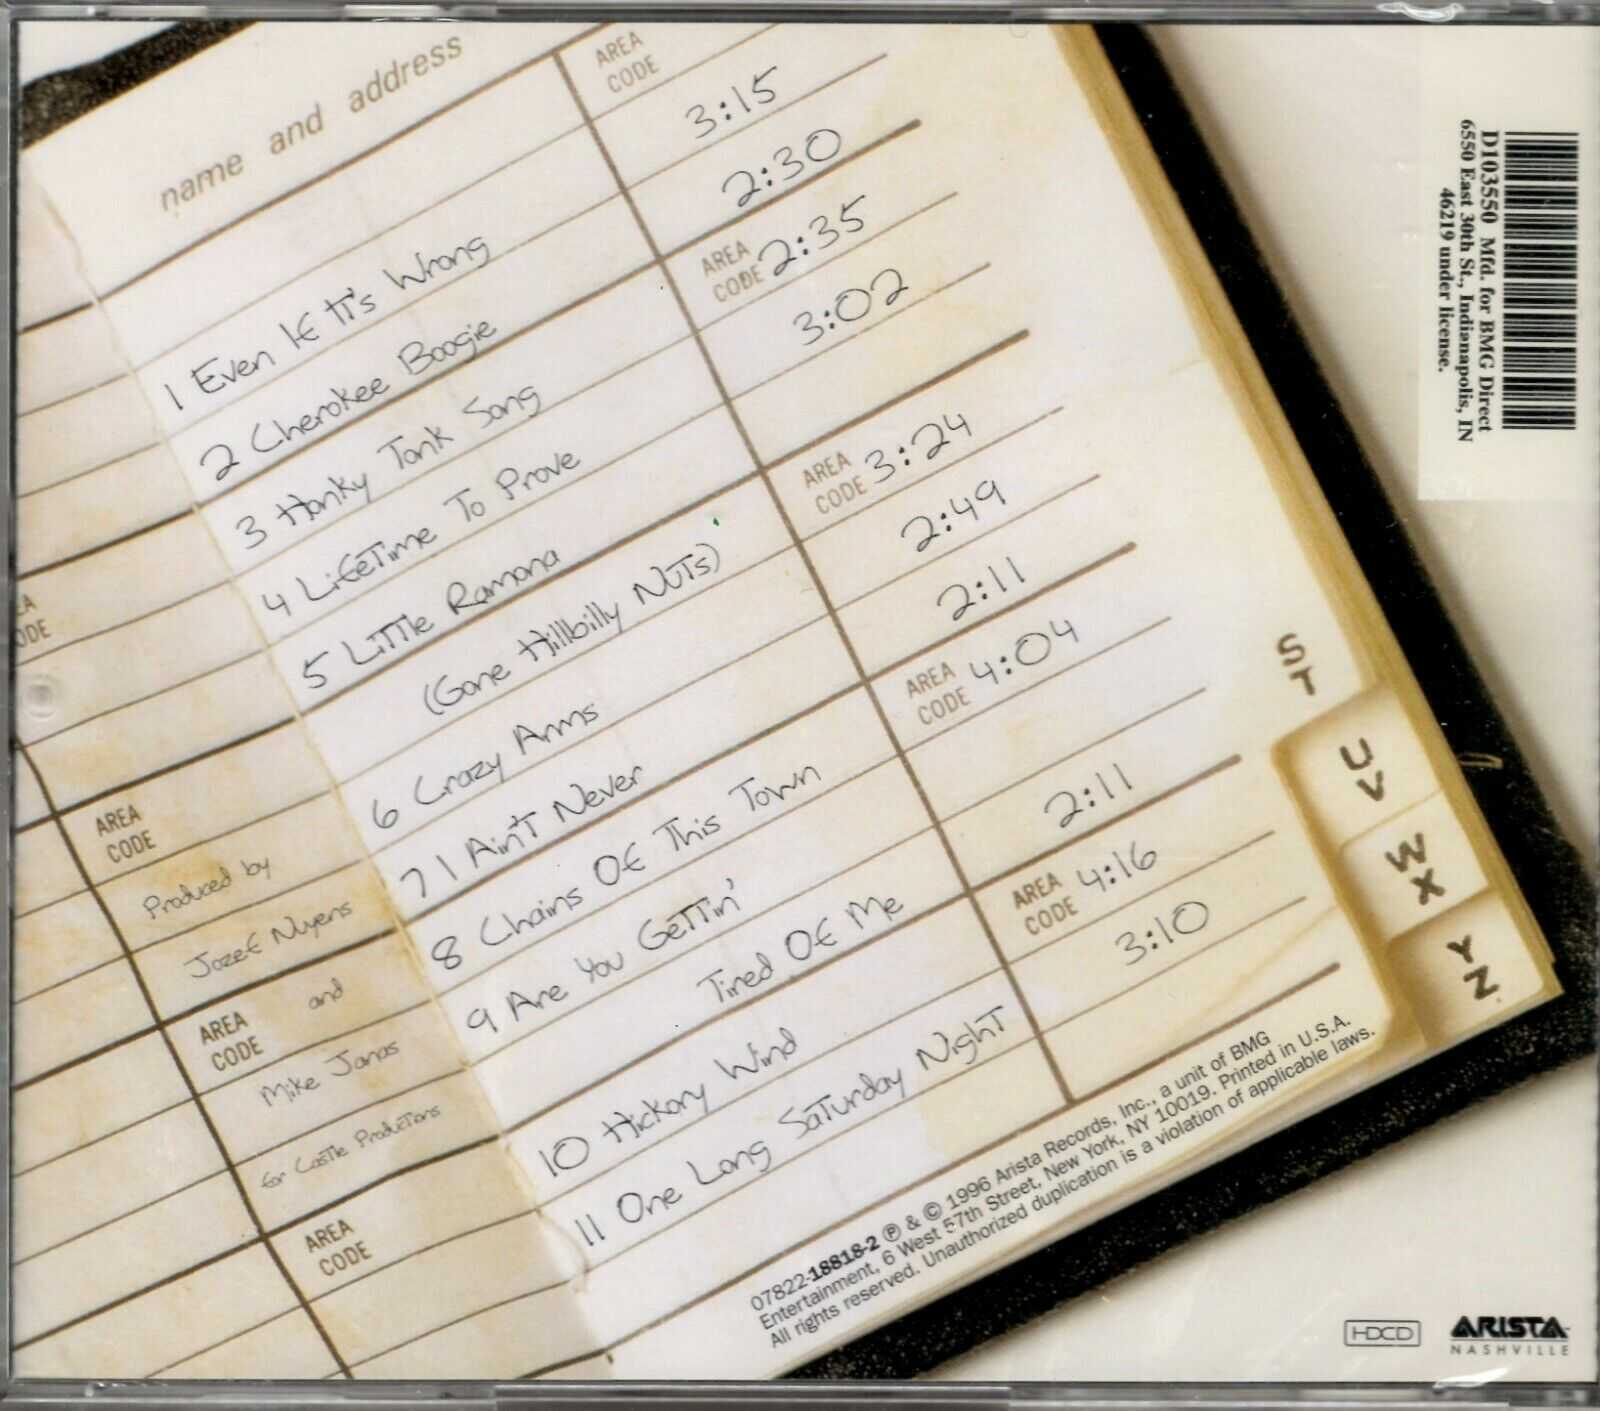 name and address
AREA
CODE
1 Even If It's Wrong 3:15
2 Cherokee Boogie 2:30
AREA
CODE
3 Honky Tonk Song 2:35
4 Lifetime To Prove 3:02
5 Little Ramona
(Gone Hillbilly Nuts) 3:24
AREA
CODE
6 Crazy Arms 2:49
7 I Ain't Never 2:11
AREA
CODE
8 Chains Of This Town 4:04
9 Are You Gettin'
Tired Of Me 2:11
AREA
CODE
10 Hickory Wind 4:16
11 One Long Saturday Night 3:10
AREA
CODE
Produced by
Jozef Nuyens
AREA
CODE
and
Mike Janas
for Castle Productions
AREA
CODE
S
T
U
V
W
X
Y
Z
07822-18818-2 ℗ & © 1996 Arista Records, Inc., a unit of BMG
Entertainment, 6 West 57th Street, New York, NY 10019. Printed in U.S.A.
All rights reserved. Unauthorized duplication is a violation of applicable laws.
D103550 Mfd. for BMG Direct
6550 East 30th St., Indianapolis, IN
46219 under license.
HDCD
ARISTA
NASHVILLE